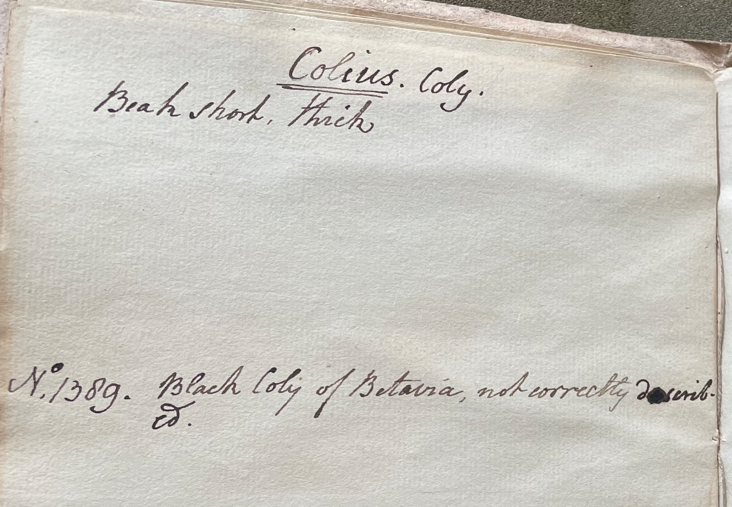 Colius. Coly.
Beak short, thick
No. 1389. Black Coly of Betavia, not correctly describ-
ed.